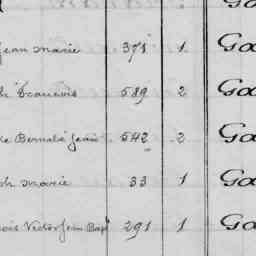 Jean Marie 371 1 Ga
h François 589 2 Ga
ke Bernabé Jean 542 2 Ga
ph Marie 33 1 Ga
ois Victor Jean Bapt 291 1 Ga